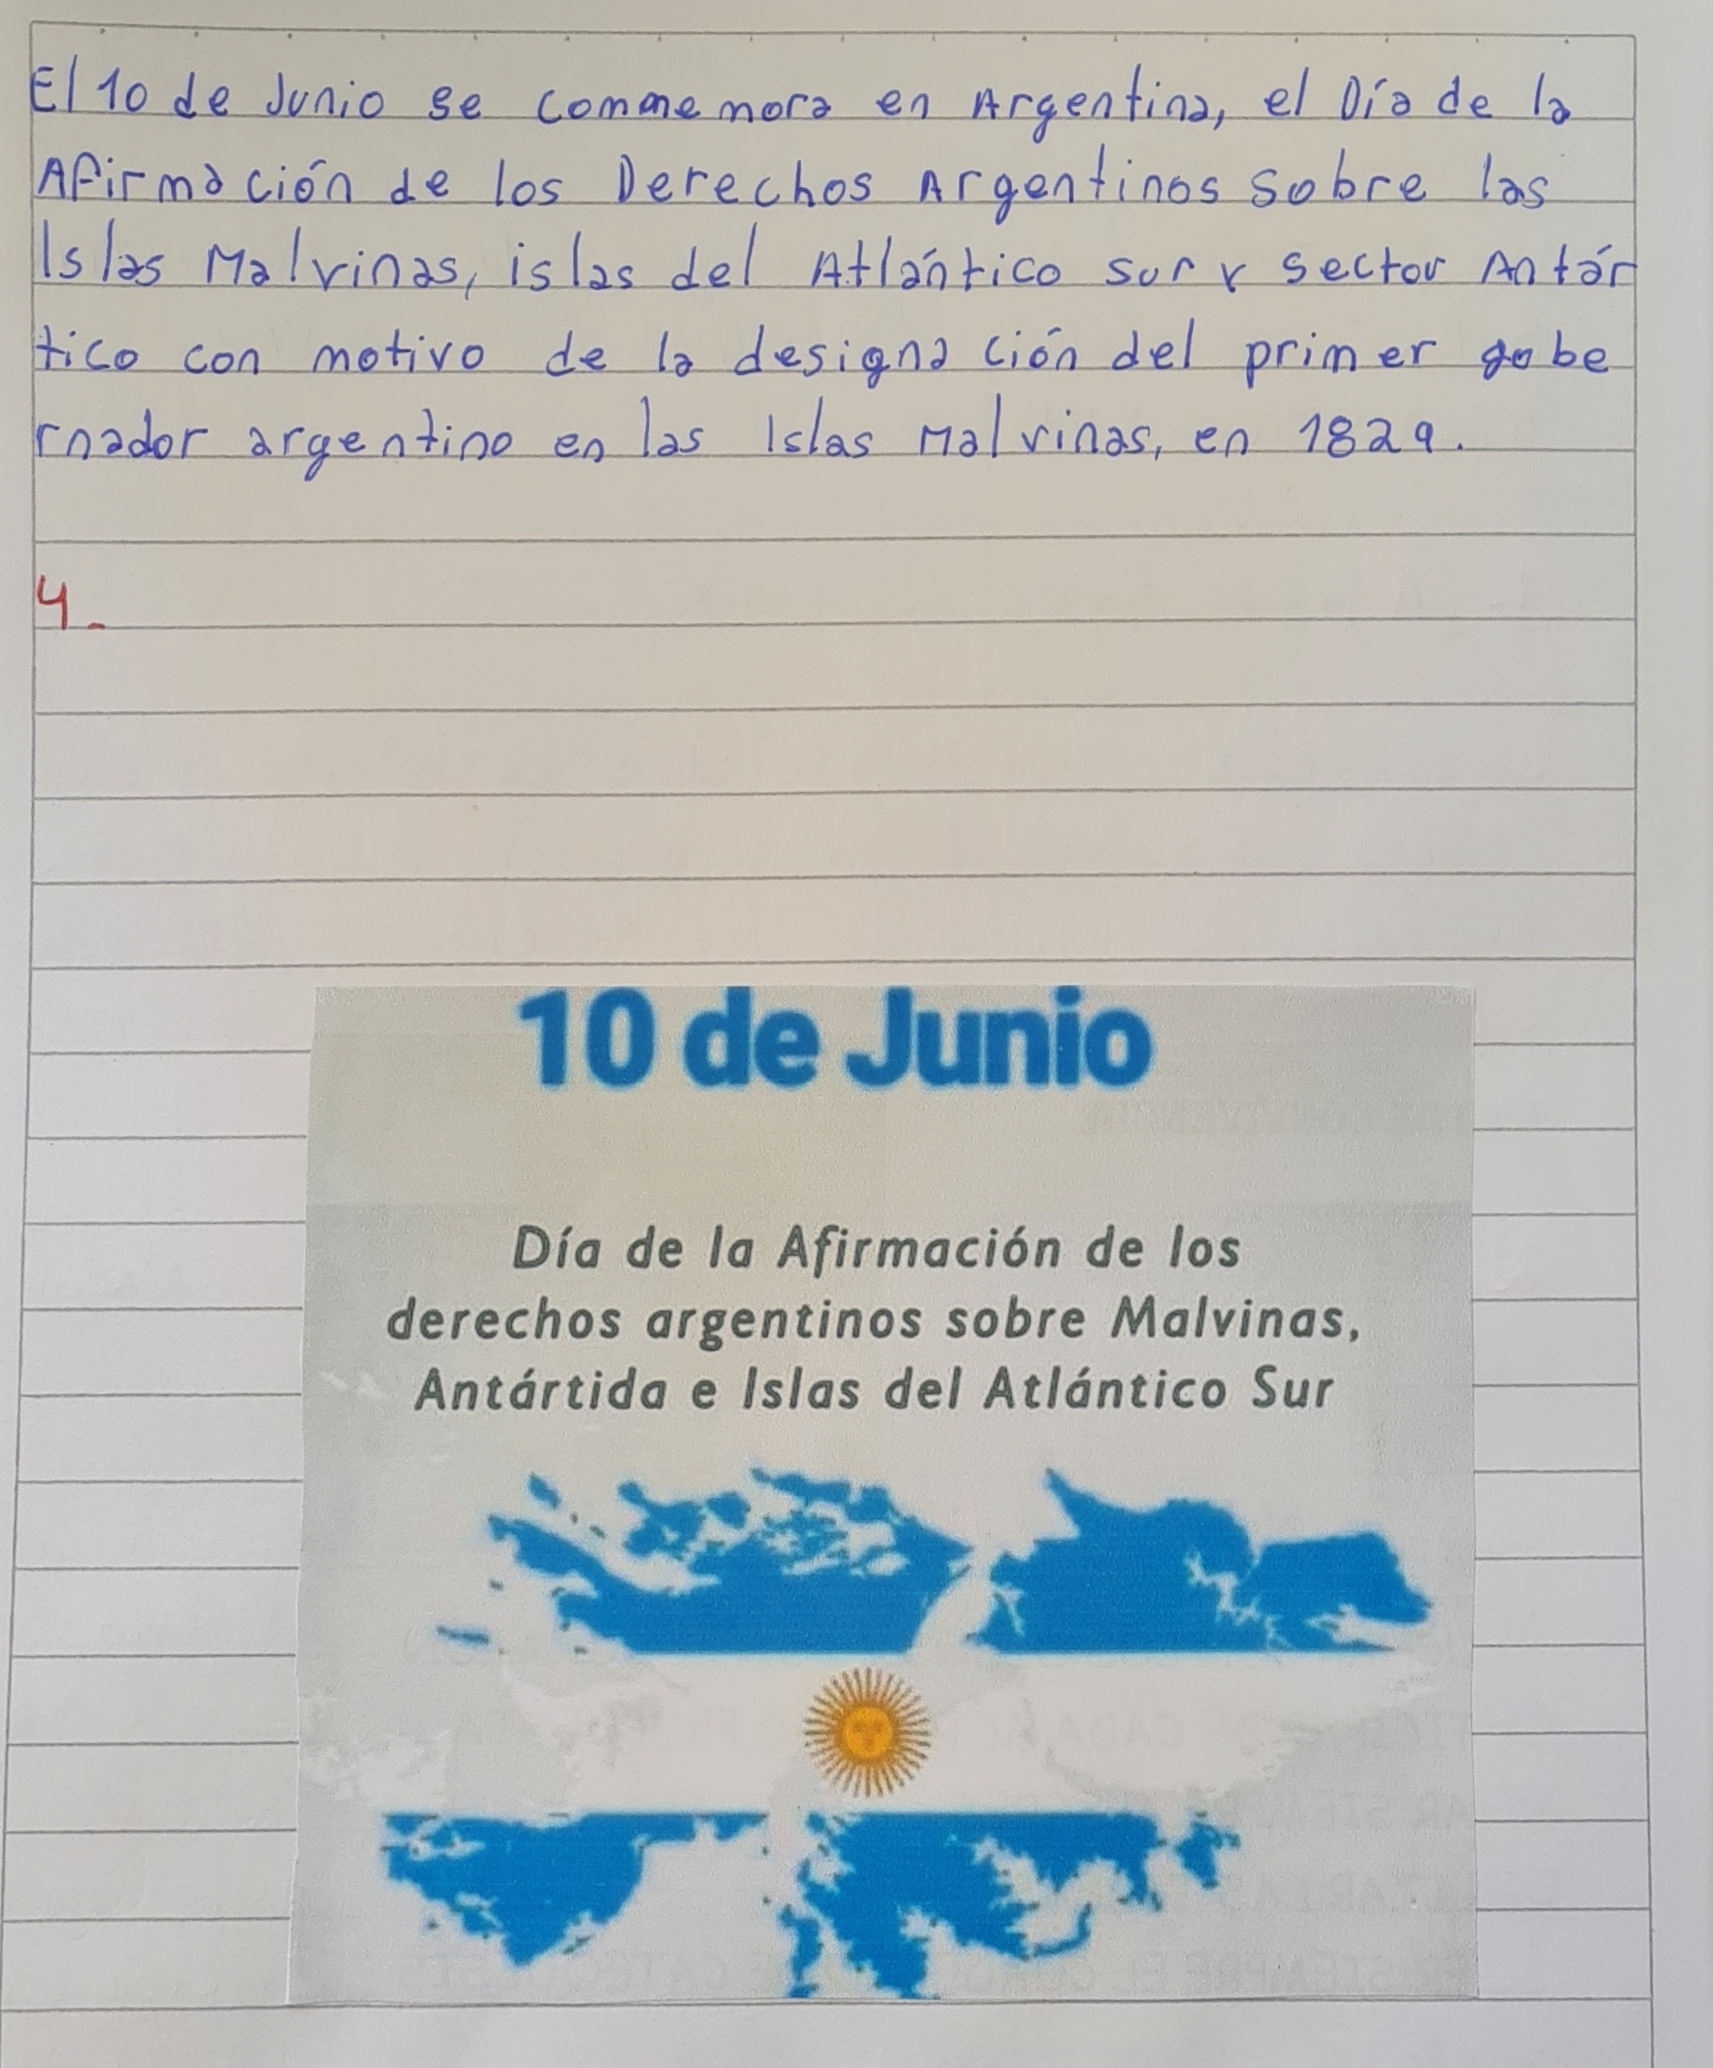 El 10 de Junio se commemora en Argentina, el Día de la
Afirmación de los Derechos Argentinos sobre las
Islas Malvinas, islas del Atlántico sur y sector Antár
tico con motivo de la designación del primer gobe
rnador argentino en las Islas Malvinas, en 1829.
4.
10 de Junio
Día de la Afirmación de los
derechos argentinos sobre Malvinas,
Antártida e Islas del Atlántico Sur